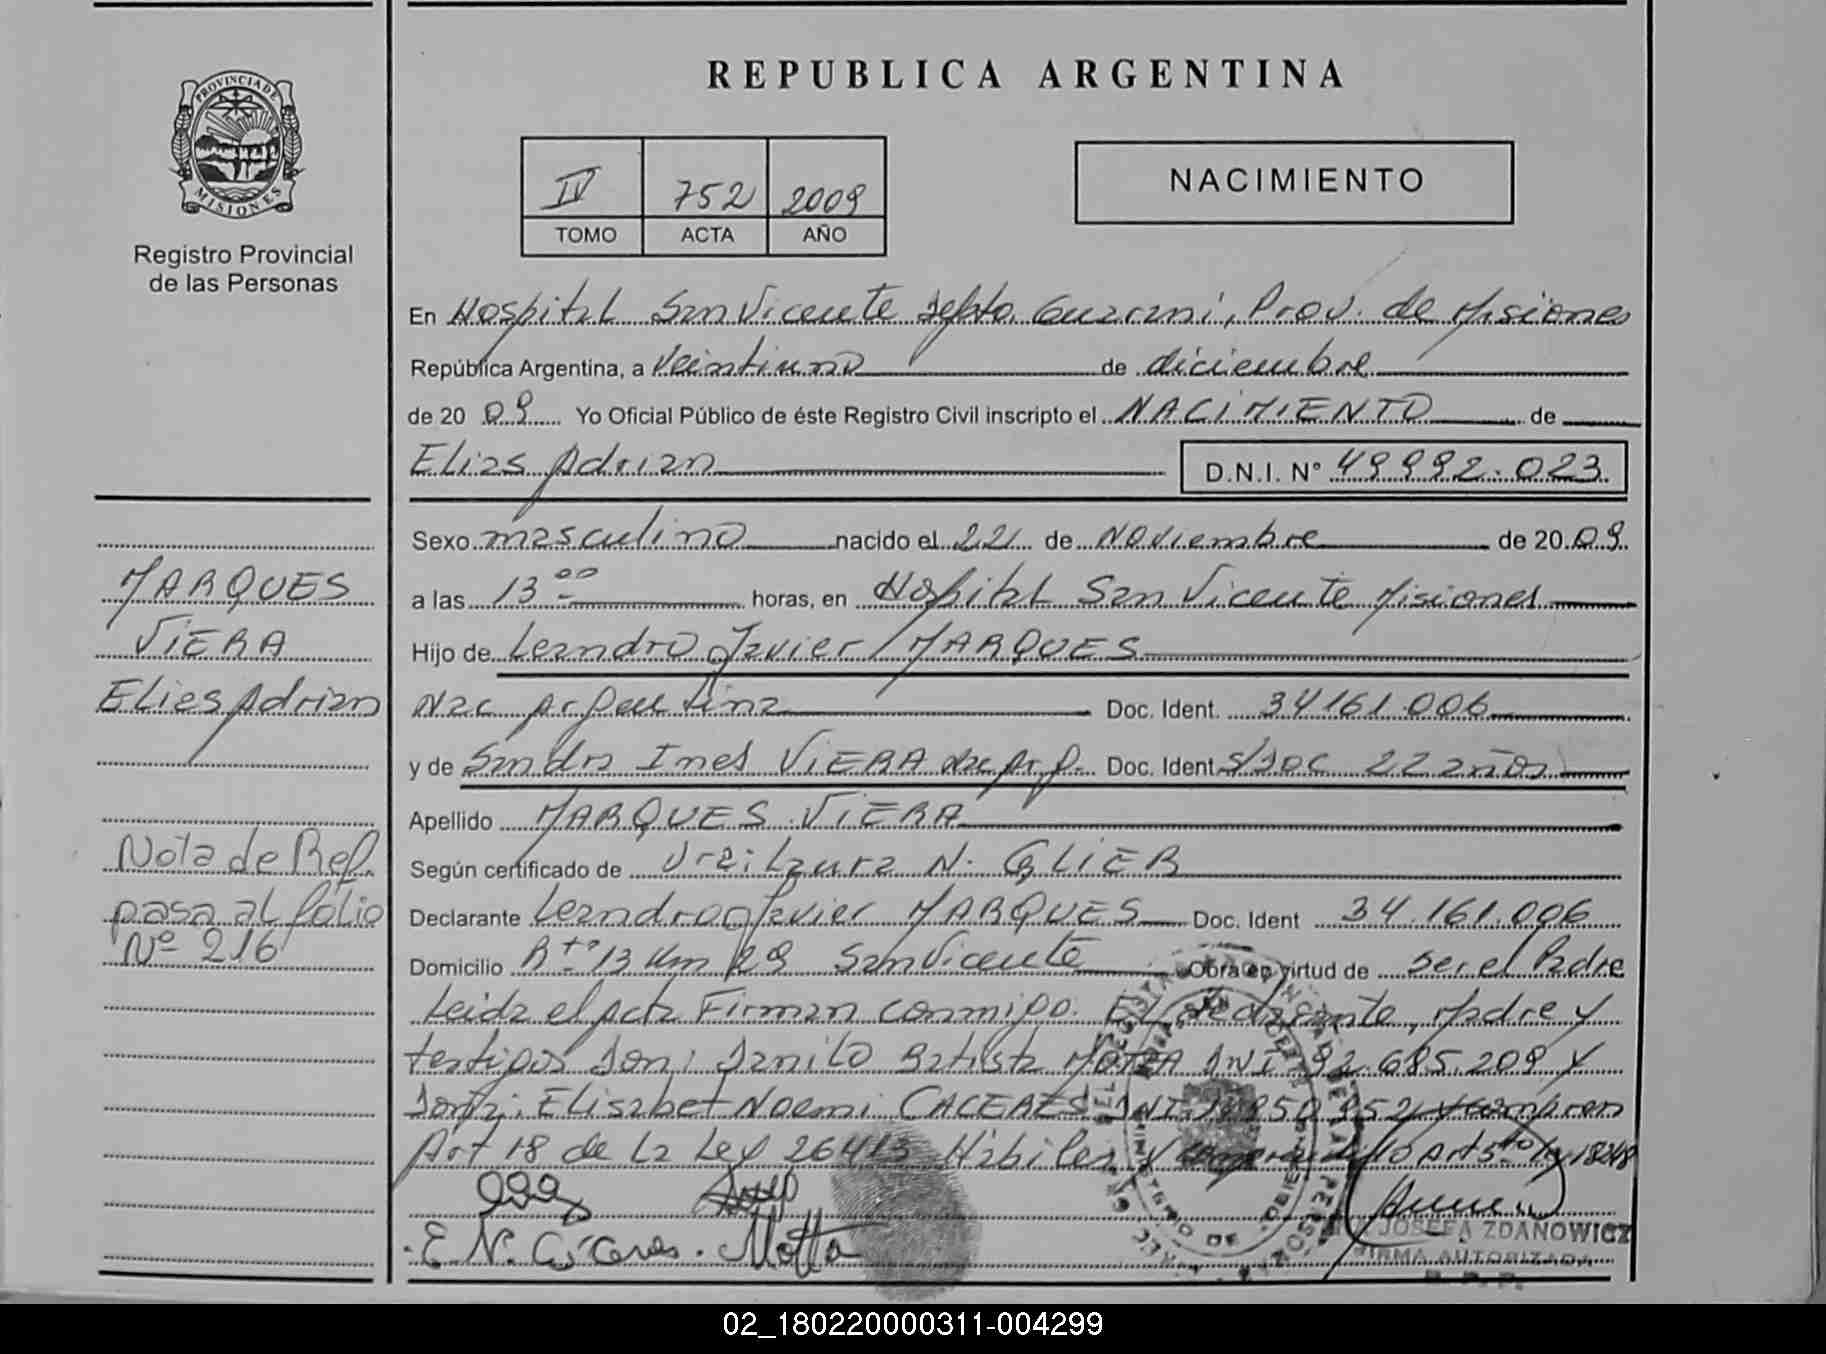 PROVINCIA DE
MISIONES
Registro Provincial
de las Personas
REPUBLICA ARGENTINA
IV 752 2009
TOMO ACTA AÑO
NACIMIENTO
En Hospital San Vicente Depto. Guarani, Prov. de Misiones
República Argentina, a veintiuno de diciembre
de 20 09 Yo Oficial Público de éste Registro Civil inscripto el NACIMIENTO de
Elias Adrian D.N.I. N° 49992.023
Sexo masculino nacido el 22 de Noviembre de 20 09
a las 13 00 horas, en Hospital San Vicente Misiones
Hijo de Leandro Javier MARQUES
Nac Argentina Doc. Ident. 34161.006
y de Sandra Ines VIERA Nac Arg. Doc. Ident S/Doc 22 años
Apellido MARQUES VIERA
Según certificado de Dra: Laura N. GLIER
Declarante Leandro Javier MARQUES Doc. Ident 34.161.006
Domicilio Rta 13 Km 29 San Vicente Obra en virtud de ser el Padre
Leida el acta Firman conmigo. El declarante, Madre y
testigos Don: Danilo Batista MOTTA DNI 92.685.209 y
Doña: Elisabet Noemi CACERES DNI
Art 18 de La Ley 26413 Habiles y
E N. Cáceres. Motta
JOSEFA ZDANOWICZ
FIRMA AUTORIZADA
R. P. P.
MARQUES
VIERA
Elias Adrian
Nota de Ref.
pasa al folio
Nº 216
02_180220000311-004299